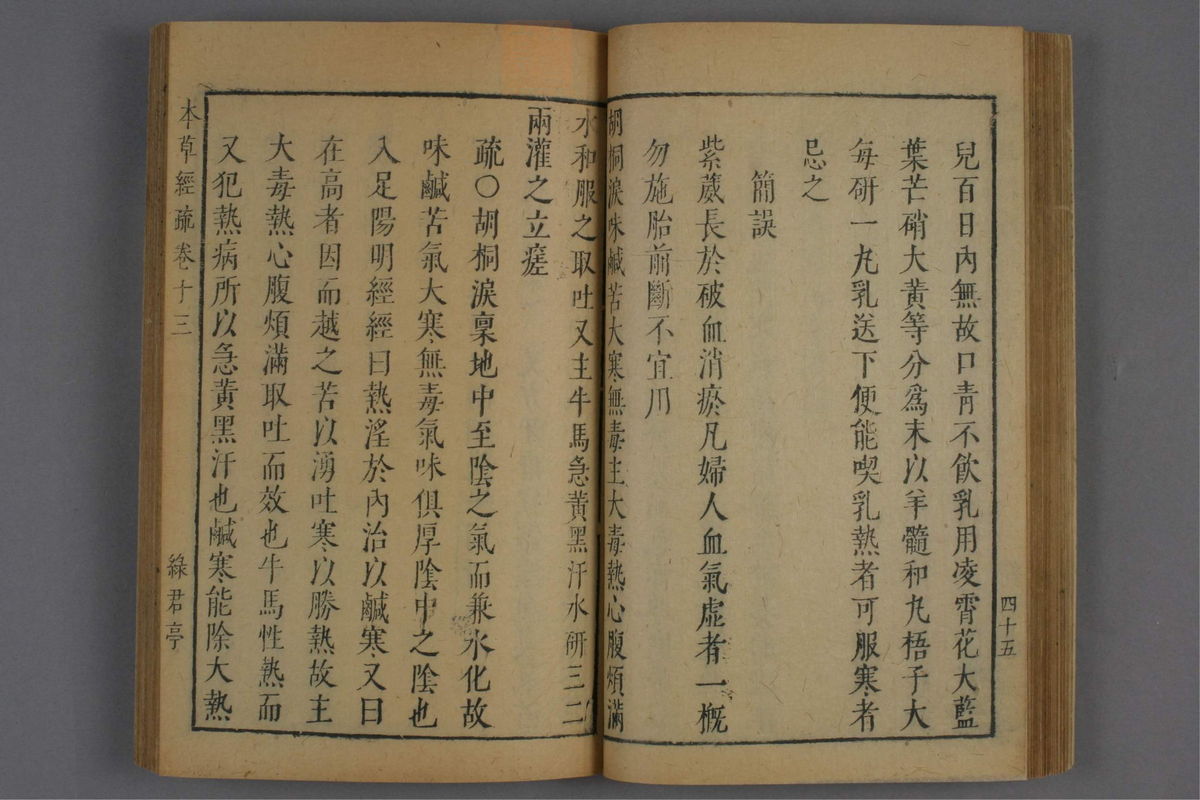 兒百日內無故口靑不飲乳用凌霄花大藍
葉芒硝大黃等分爲末以羊髓和丸梧子大
每研一丸乳送下便能喫乳熱者可服寒者
忌之
簡誤
紫葳長於破血消瘀凡婦人血氣虛者一概
勿施胎前斷不宜用
胡桐淚味鹹苦大寒無毒主大毒熱心腹煩滿
四十五
水和服之取吐又主牛馬急黃黑汗水研三二
兩灌之立瘥
疏○胡桐淚稟地中至陰之氣而兼水化故
味鹹苦氣大寒無毒氣味俱厚陰中之陰也
入足陽明經經曰熱淫於內治以鹹寒又曰
在高者因而越之苦以湧吐寒以勝熱故主
大毒熱心腹煩滿取吐而效也牛馬性熱而
又犯熱病所以急黃黑汗也鹹寒能除大熱
本草經疏卷十三
綠君亭